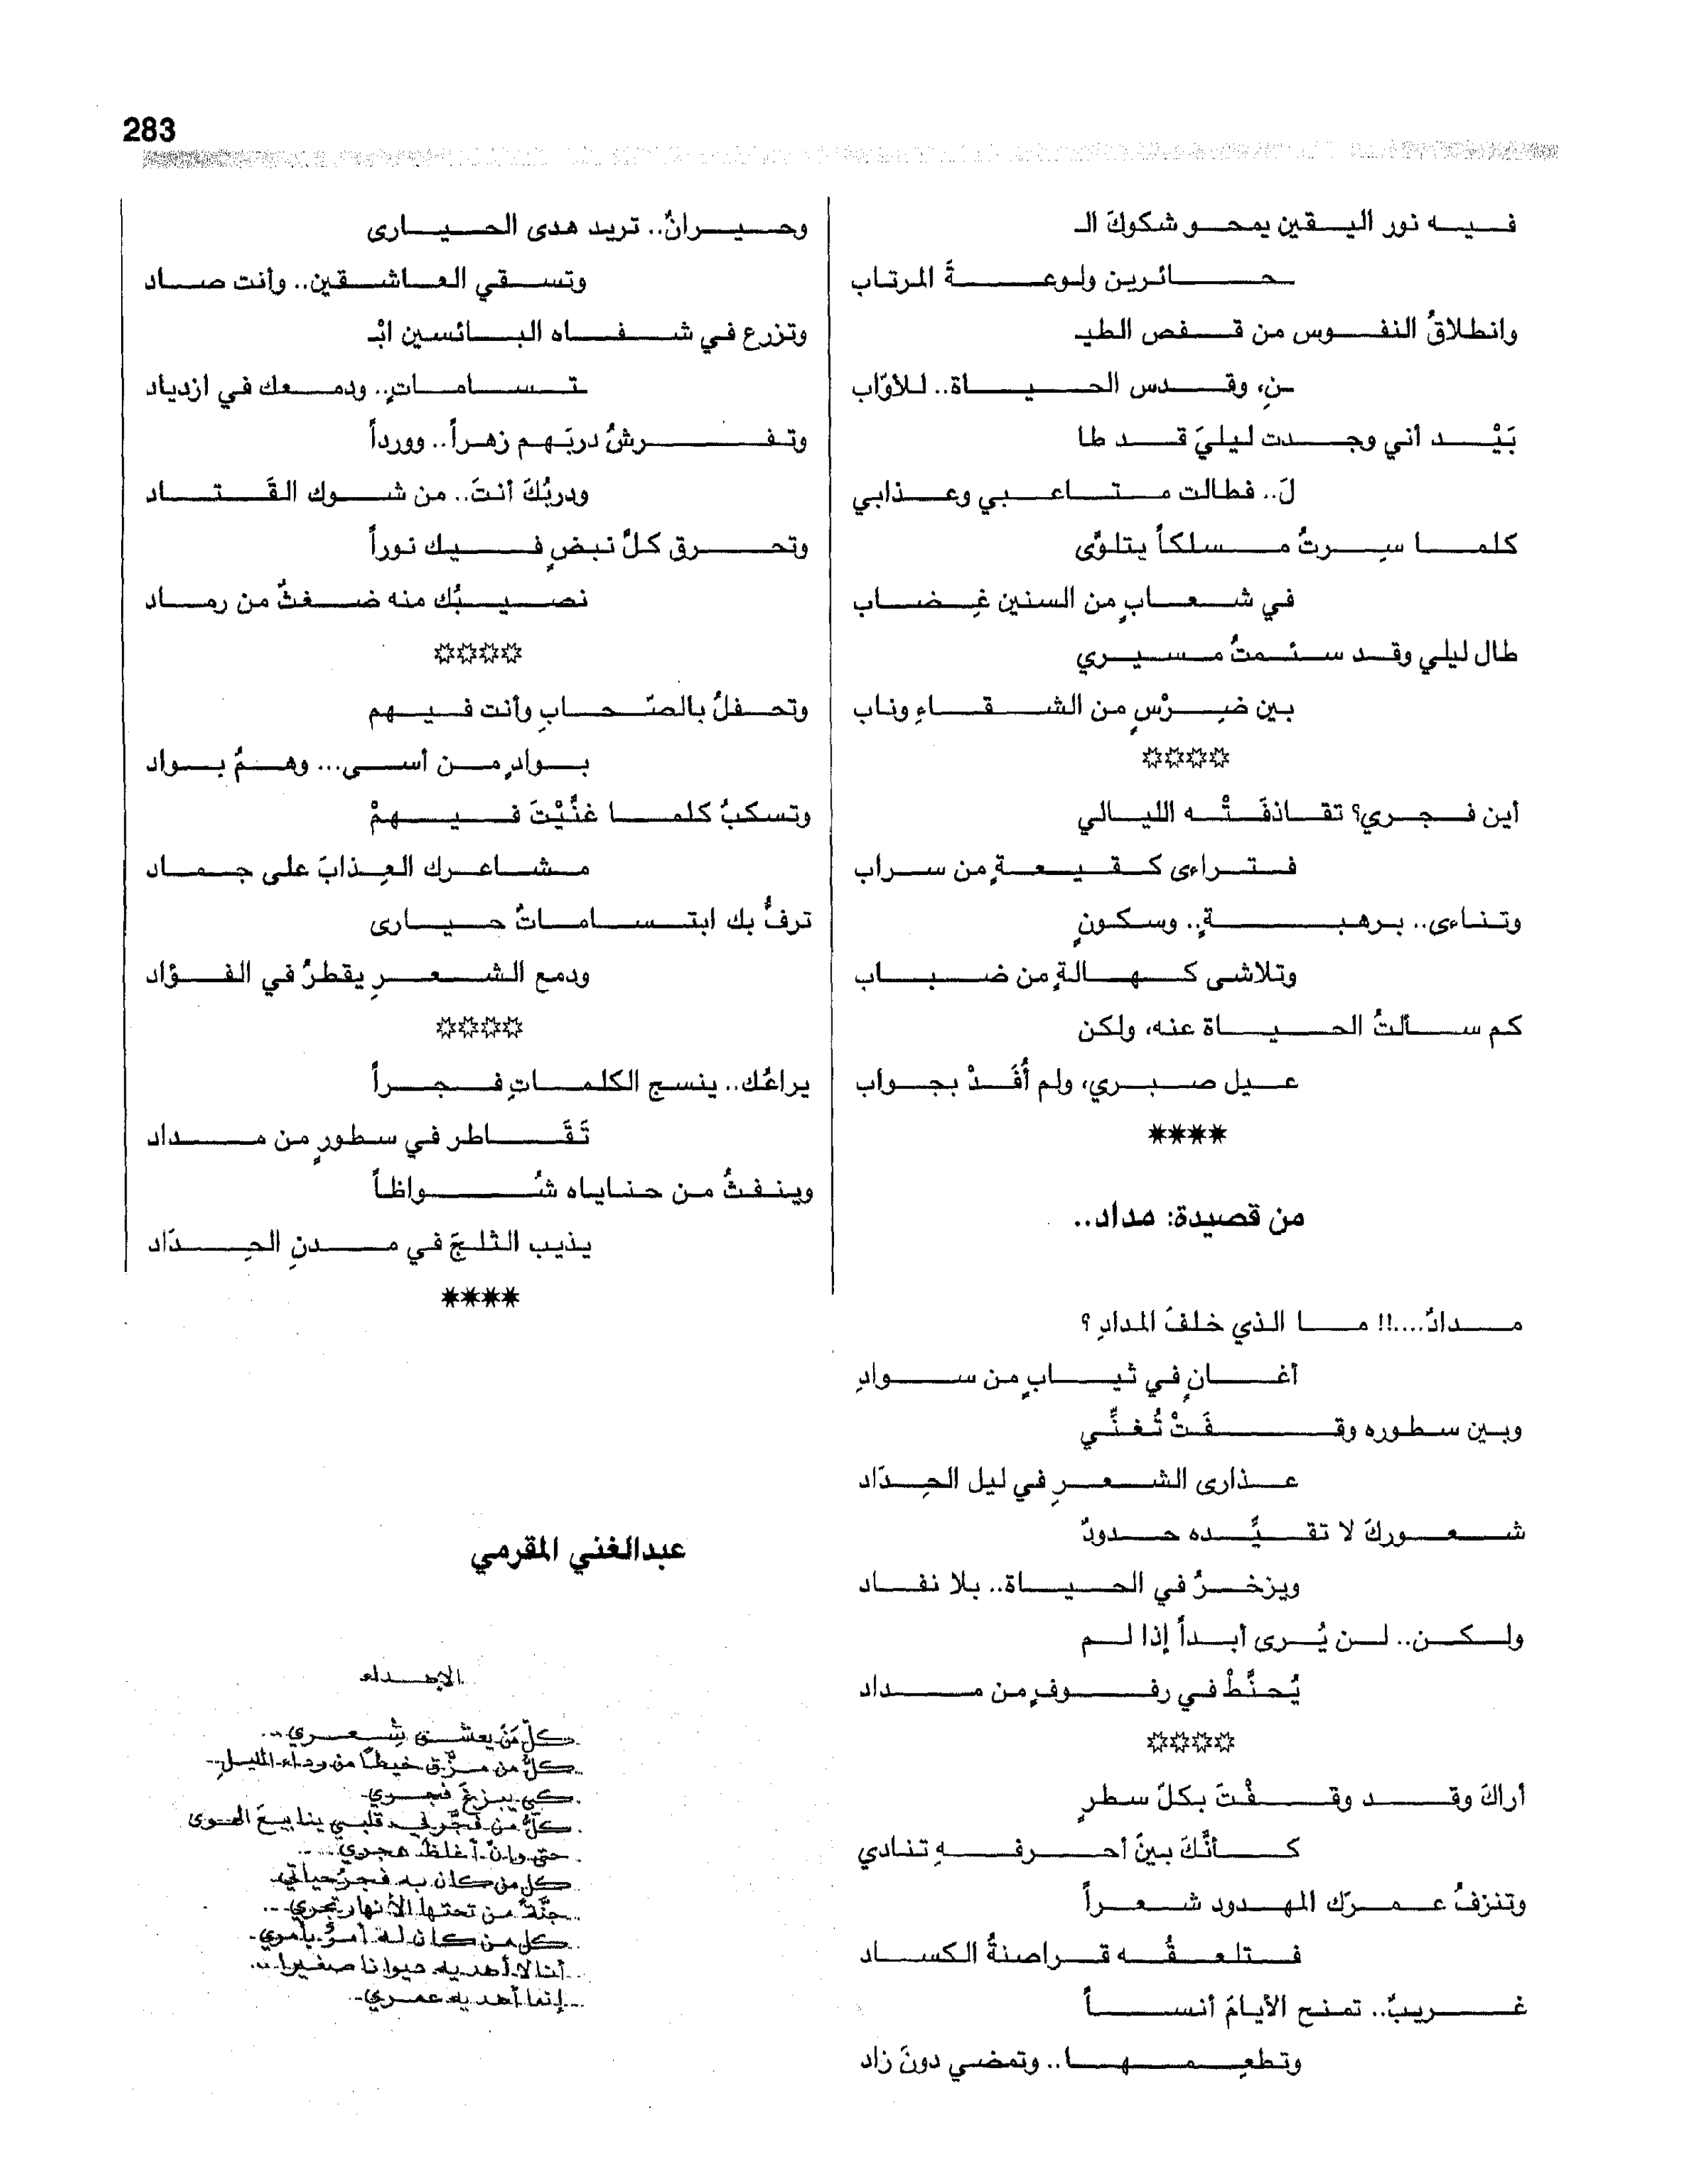 283
فيه نور اليقين يمحو شكوكَ الـ
حائرين ولوعةَ المرتاب
وانطلاقُ النفوس من قفص الطيـ
ـنِ، وقدس الحياة.. للأوّاب
بَيْد أني وجدت ليليَ قد طا
لَ.. فطالت متاعبي وعذابي
كلما سِرتُ مسلكاً يتلوّى
في شعابٍ من السنين غِضاب
طال ليلي وقد سئمتُ مسيري
بين ضِرْسٍ من الشقاءِ وناب
****
أين فجري؟ تقاذفَتْه الليالي
فتراءى كقيعةٍ من سراب
وتناءى.. برهبةٍ.. وسكونٍ
وتلاشى كهالةٍ من ضباب
كم سألتُ الحياة عنه، ولكن
عيل صبري، ولم أُفَدْ بجواب
****
من قصيدة: مداد..
مدادٌ....!! ما الذي خلفَ المدادِ؟
أغانٍ في ثيابٍ من سوادِ
وبين سطوره وقفَتْ تُغنِّي
عذارى الشعرِ في ليل الحِدَاد
شعوركَ لا تقيِّده حدودٌ
ويزخرُ في الحياة.. بلا نفاد
ولكن.. لن يُرى أبداً إذا لم
يُحنَّطْ في رفوفٍ من مداد
****
أراكَ وقد وقفْتَ بكلّ سطرٍ
كأنَّكَ بينَ أحرفهِ تنادي
وتنزفُ عمرَك المهدود شعراً
فتلعقُه قراصنةُ الكساد
غريبٌ.. تمنح الأيامَ أنساً
وتطعِمها.. وتمضي دونَ زاد
وحيرانٌ.. تريد هدى الحيارى
وتسقي العاشقين.. وأنت صاد
وتزرع في شفاه البائسين ابْـ
ـتساماتٍ.. ودمعك في ازدياد
وتفرشُ دربَهم زهراً.. وورداً
ودربُكَ أنتَ.. من شوك القَتاد
وتحرق كلَّ نبضٍ فيك نوراً
نصيبُك منه ضغثٌ من رماد
****
وتحفلُ بالصّحابِ وأنت فيهم
بوادٍ من أسى... وهمُ بواد
وتسكبُ كلما غنَّيْتَ فيهمْ
مشاعرك العِذابَ على جماد
ترفُّ بك ابتساماتٌ حيارى
ودمع الشعرِ يقطرُ في الفؤاد
****
يراعُك.. ينسج الكلماتِ فجراً
تَقَاطر في سطورٍ من مداد
وينفثُ من حناياه شُواظاً
يذيب الثلجَ في مدنِ الحِدَاد
****
عبدالغني المقرمي
الإهداء
كلّ مَنْ يعشق شِعري..
كلُّ من مزّق خيطًا من رداء الليل..
كي يبزغَ فجري.
كلُّ من فجَّر في قلبي ينابيعَ الهوى
حتى وإنْ أغلظَ هجري...
كل من كان به فجرُ حياتي
جنَّةً من تحتها الأنهار تجري...
كل من كان له أمرٌ بأمري.
أنا لا أهديه ديوانا صغيرا..
إنما أهديه عمري..